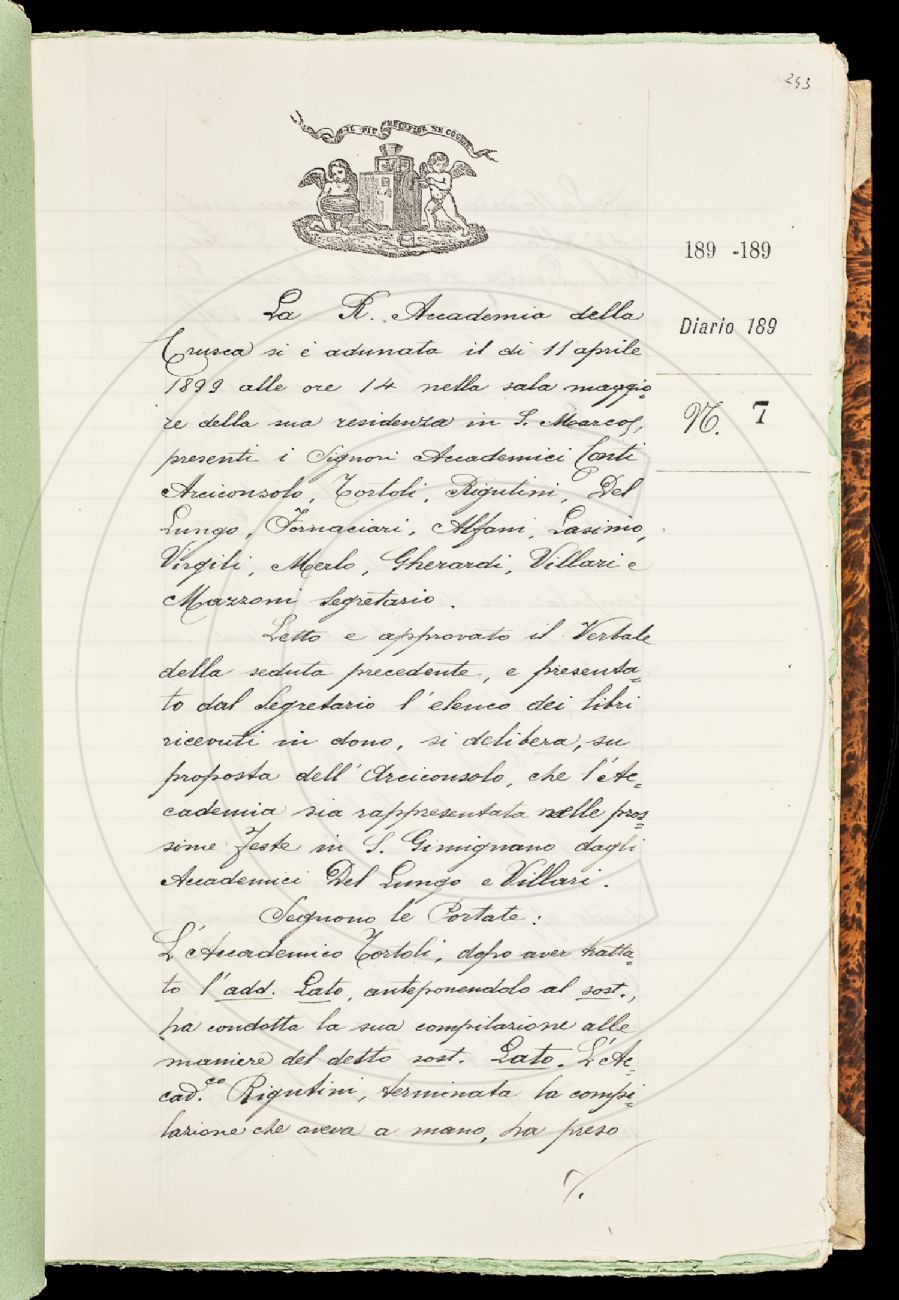 243
IL PIÙ BEL FIOR NE COGLIE
189 -189
Diario 189
N. 7
La R. Accademia della
Crusca si è adunata il dì 11 aprile
1899 alle ore 14 nella sala maggio=
re della sua residenza in S. Marco,
presenti i Signori Accademici Conti
Arciconsolo, Tortoli, Rigutini, Del
Lungo, Fornaciari, Alfani, Lasinio,
Virgili, Merlo, Gherardi, Villari e
Mazzoni Segretario.
Letto e approvato il Verbale
della seduta precedente, e presenta=
to dal Segretario l'elenco dei libri
ricevuti in dono, si delibera, su
proposta dell'Arciconsolo, che l'Ac=
cademia sia rappresentata nelle pros=
sime feste in S. Gimignano dagli
Accademici Del Lungo e Villari.
Seguono le Portate:
L'Accademico Tortoli, dopo aver tratta=
to l'add. Lato, anteponendolo al sost.,
ha condotta la sua compilazione alle
maniere del detto sost. Lato. L'Ac=
cad.co Rigutini, terminata la compi=
lazione che aveva a mano, ha preso